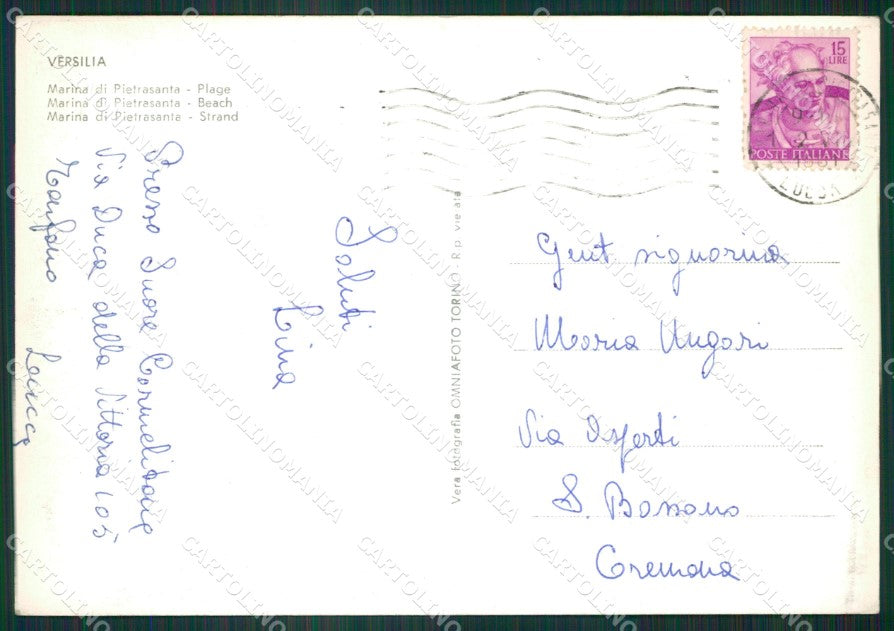 VERSILIA
Marina di Pietrasanta - Plage
Marina di Pietrasanta - Beach
Marina di Pietrasanta - Strand
15
LIRE
POSTE ITALIANE
1961
LUCCA
Presso Suore Carmelitane
Via Duca della Vittoria 105
Lucca
Saluti
Lina
Vera Fotografia OMNIAFOTO TORINO - Rip. vietata
Gent signorina
Maria Ungari
Via
S. Bassano
Cremona
CARTOLINOMANIA